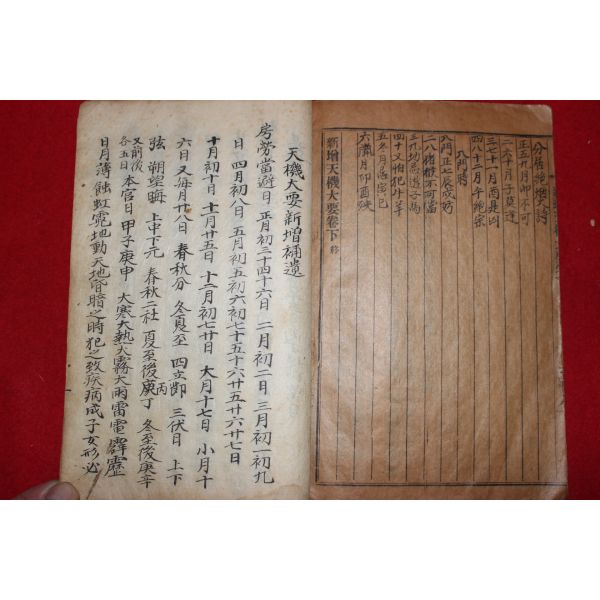 分居絶烟火詩
正五九月卯不可
二六十月子莫逢
三七十一月酉是凶
四八十二月午絶
入門詩
入門正七辰戌好
二八猪蛇不可當
三九
四十又怕犯牛羊
五
六臘月卯酉殃
新增天機大要卷下 終
天機大要新增補遺
房勞當避日 正月初三十四十六日 二月初二日 三月初一初九
日 四月初八日 五月初五初六初七十五十六廿五廿六廿七日
十月初十日 十一月廿五日 十二月初七廿日 大月十七日 小月十
六日 又每月廿八日 春秋分 冬夏至 四立節 三伏日 上下
弦 朔望晦 上中下元 春秋二社 夏至後丙丁 冬至後庚辛
又前後各五日 本宮日 甲子庚申 大寒大熱大霧大雨雷電霹靂
日月薄蝕虹霓地動天地昏暗之時犯之致疾病成子女形必